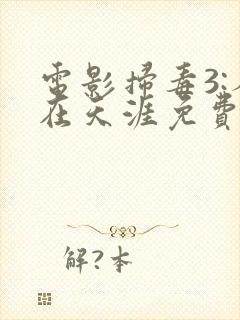 電影掃毒3:
在天涯免費
解?本